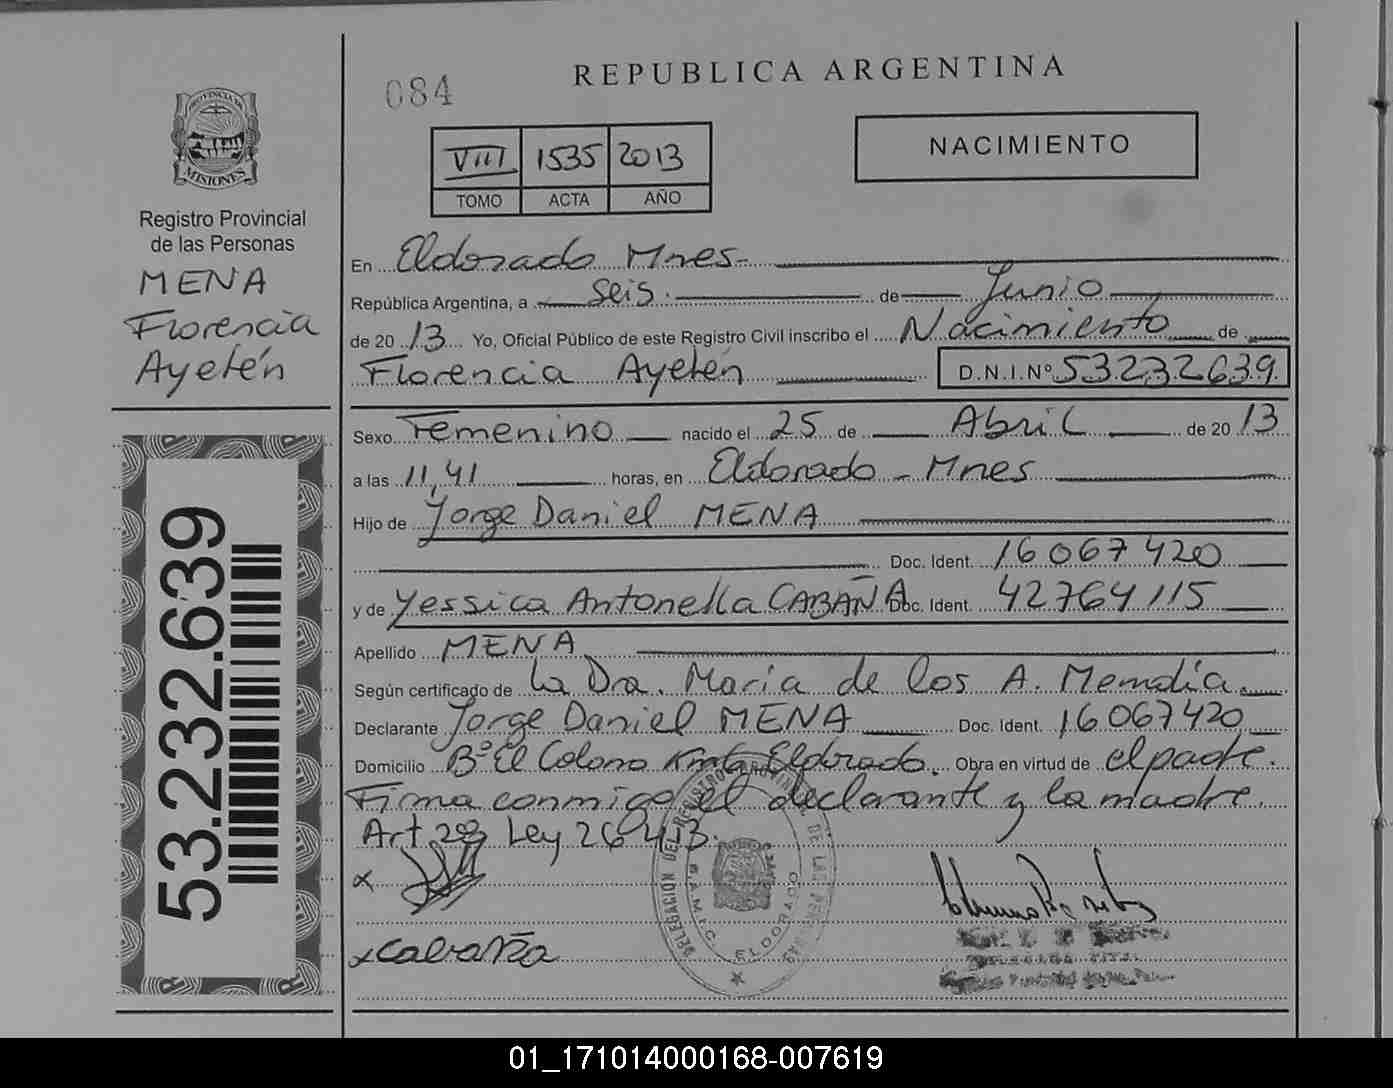 084
REPUBLICA ARGENTINA
VIII 1535 2013
TOMO ACTA AÑO
NACIMIENTO
PROVINCIA DE
MISIONES
Registro Provincial
de las Personas
MENA
Florencia
Ayelén
53.232.639
En Eldorado Mnes.
República Argentina, a seis de Junio
de 20 13 Yo, Oficial Público de este Registro Civil inscribo el Nacimiento de
Florencia Ayelén D.N.I.Nº 53232639
Sexo Femenino nacido el 25 de Abril de 20 13
a las 11,41 horas, en Eldorado - Mnes
Hijo de Jorge Daniel MENA
Doc. Ident. 16067420
y de Yessica Antonella CABAÑA Doc. Ident. 42764115
Apellido MENA
Según certificado de La Dra. Maria de los A. Mendía
Declarante Jorge Daniel MENA Doc. Ident. 16067420
Domicilio Bº El Colono Km Eldorado. Obra en virtud de el padre.
Firma conmigo el declarante y la madre.
Art. 28 Ley 26413.
x
x cabaña
DELEGACIÓN DEL REGISTRO PROVINCIAL DE LAS PERSONAS
S.A.M.I.C. ELDORADO
01_171014000168-007619